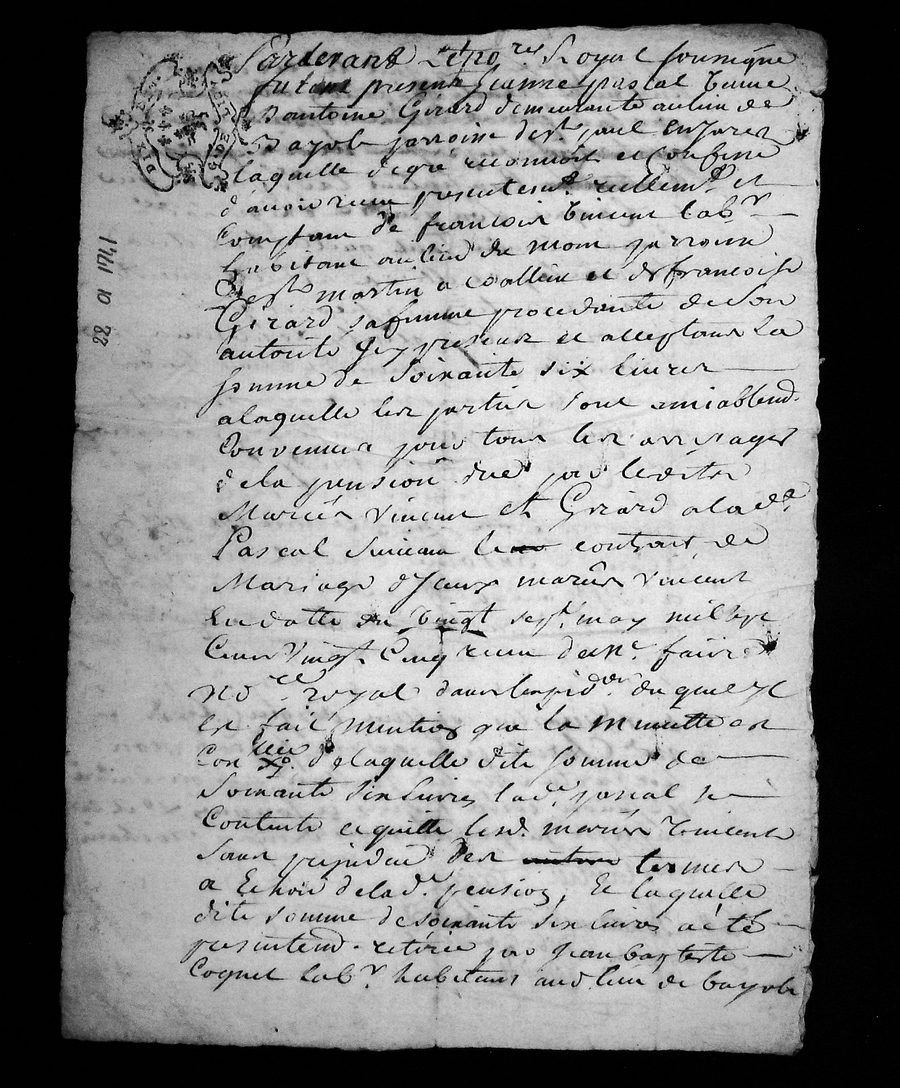 Pardevant le no.re Royal soussigné
fut en présence Jeanne pascal veuve
d'antoine Girard demeurante au lieu de
Bayole parroisse de st paul en Jarez
laquelle de gré reconnoit et confesse
d'avoir reçu présentem.t reellem.t et
comptant de françois vincent lab.r
habitant au lieu du mom parroisse
de st martin a coallieu et de françoise
Girard sa femme procedante de son
autorité icy présent et acceptans la
somme de soixante six livres
a laquelle les parties sont amiablem.t
convenues pour tous les arrerages
de la pension due par lesdits
Mariés vincent et Girard a lad.e
Pascal suivant le contrait de
Mariage d'Iceux mariés vincent
en datte du vingt sept may mil sept
cent vingt cinq receu de Me faure
no.re royal dans l'expid.on duquel il
est fait mention que la minutte est
con.llée de laquelle dite somme de
soixante six livres lad.e pascal se
contente et quitte lesd. mariés vincent
sans prejudice des termes
a Echoir de lad.e pension, Et laquelle
dite somme de soixante six livres a été
presentem.t retirée par Jean baptiste
Coquet lab.r habitant aud. lieu de bayole
22 01 1741